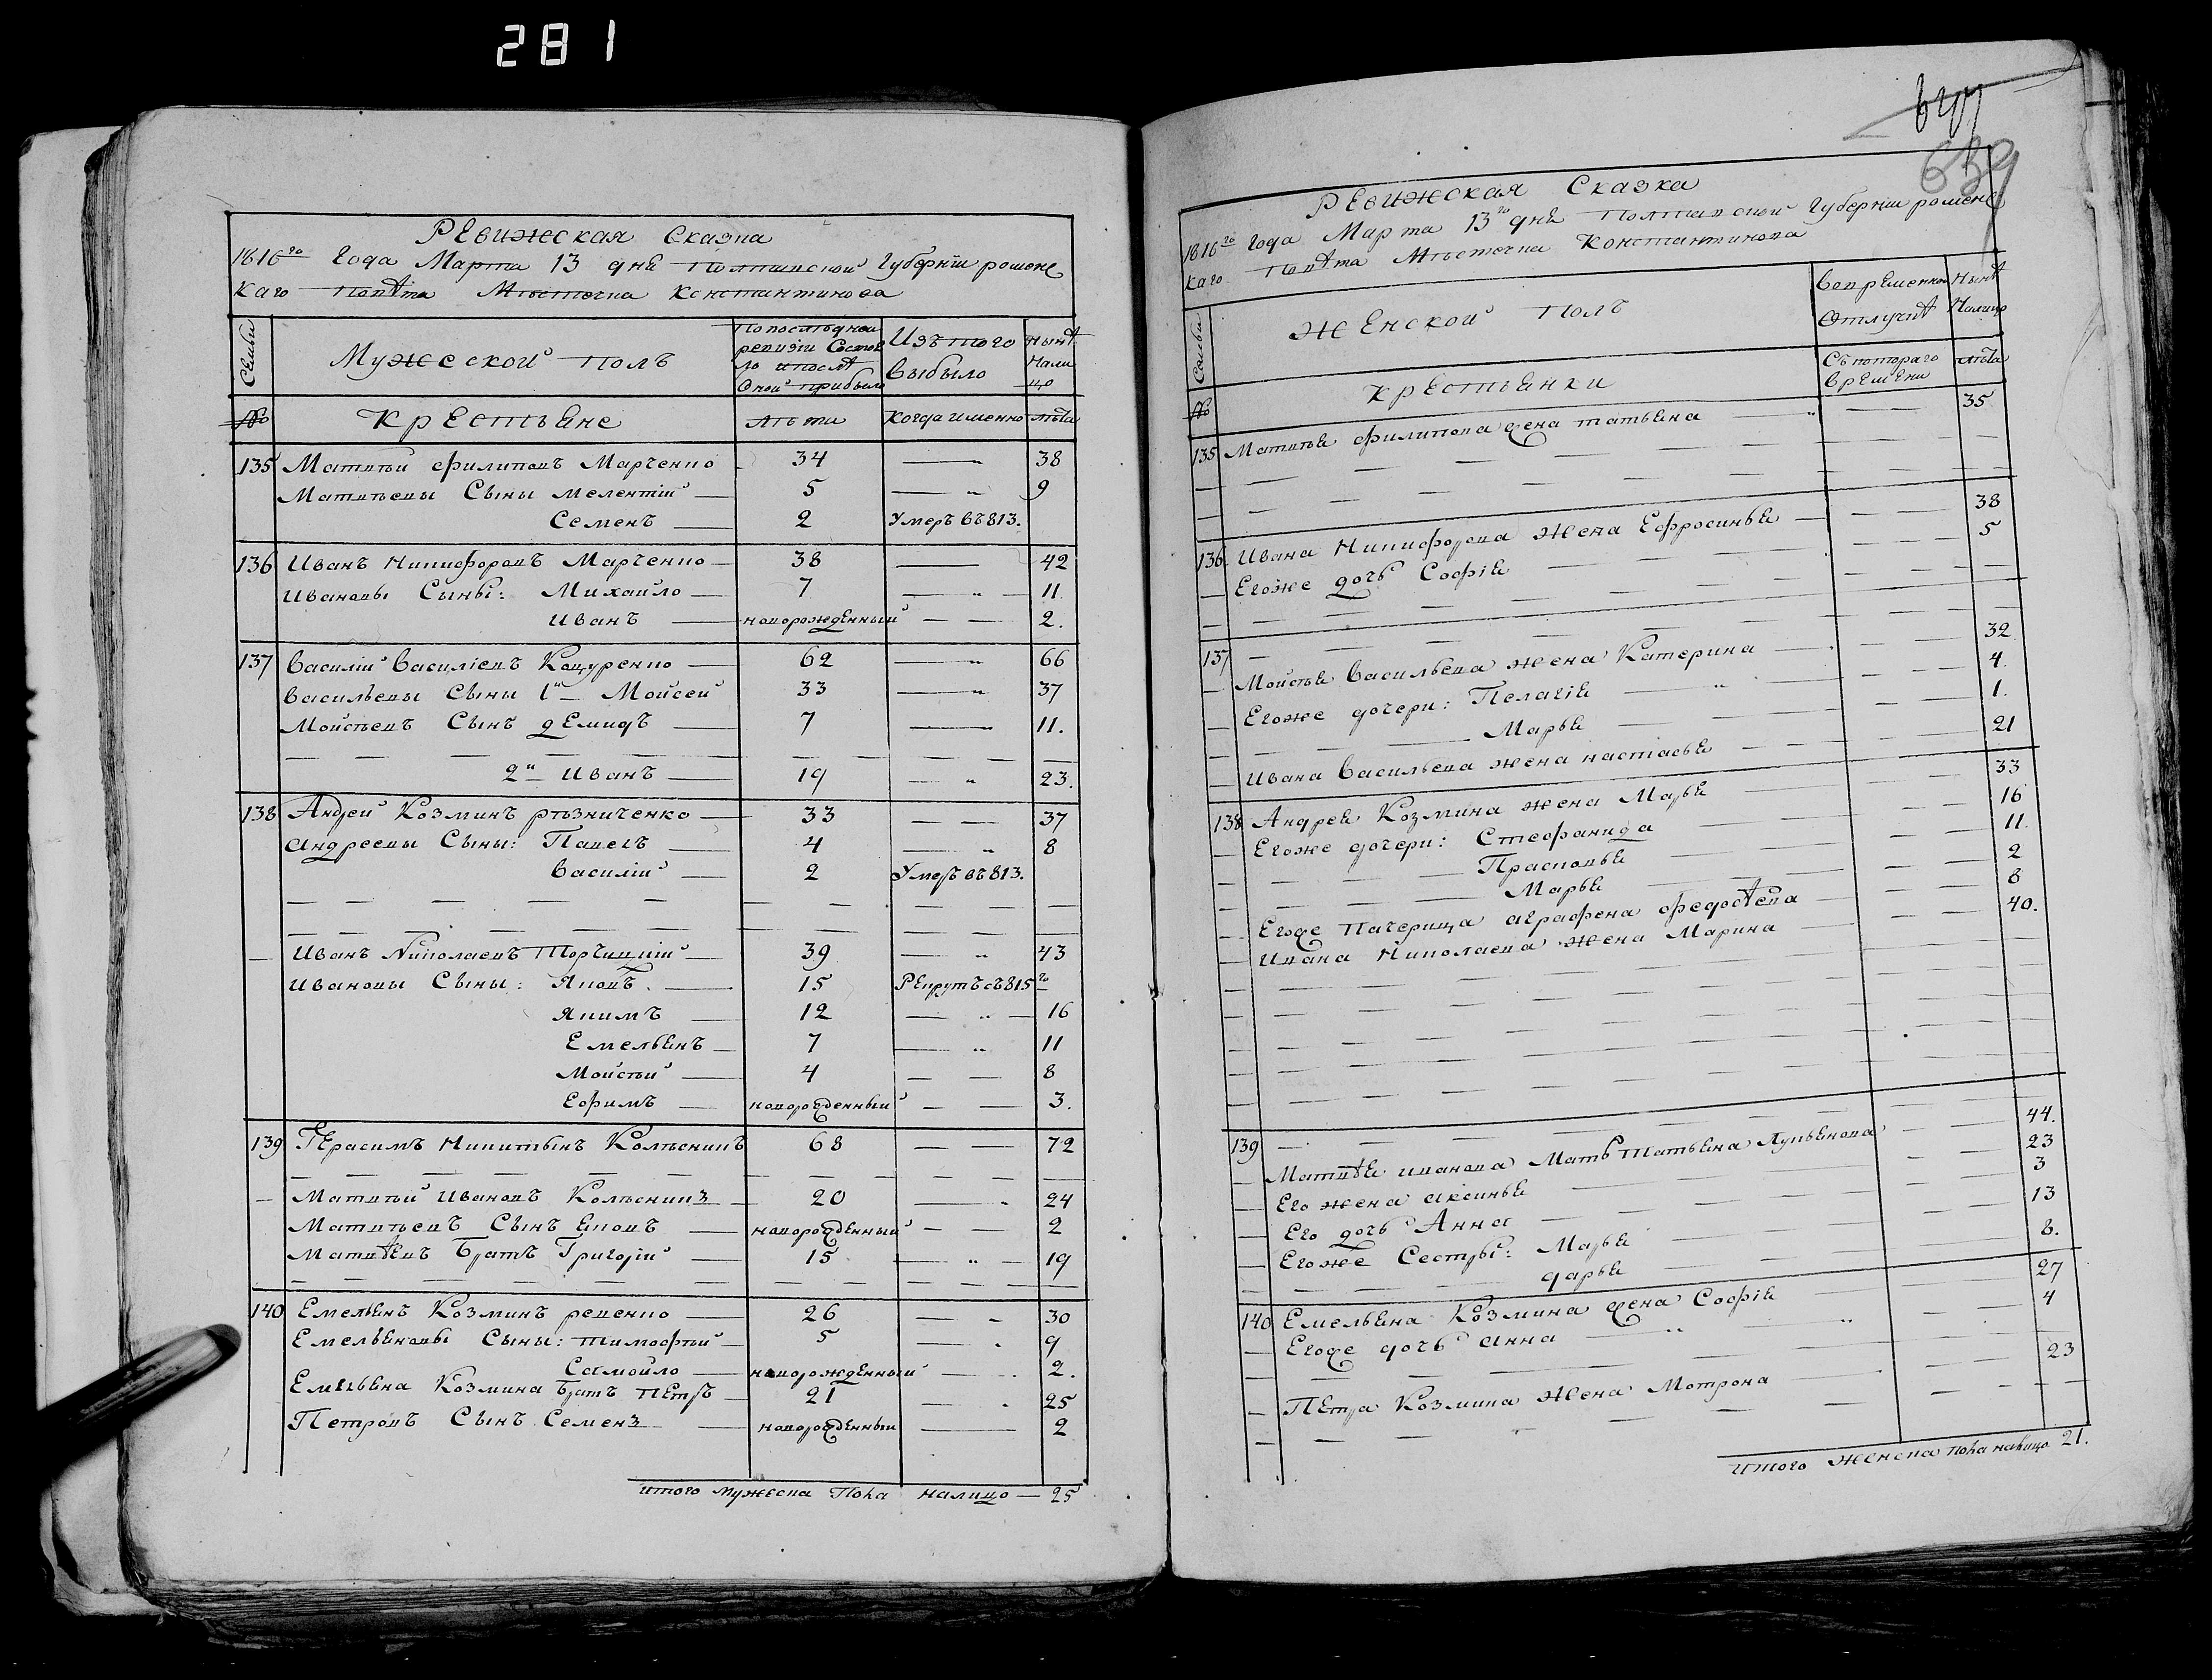 281
Ревижская Сказка
1816го Года Марта 13 дня Полтавской Губернїи роменс
каго Повѣта Мѣстечка Константинова
Семьи
Мужеской полъ
По последней ревизїи Состоя
ло и послѣ Оной прибыло
Изъ того выбыло
Нынѣ Налицо
№ Крестьяне лѣта Когда именно лѣта
135 Матвѣй Филиповъ Марченко 34 — 38
Матвѣевы Сыны Мелентїй 5 — 9
Семенъ 2 Умеръ въ 813.
136 Иванъ Никифоровъ Марченко 38 — 42
Ивановы Сыны: Михайло 7 — 11.
Иванъ новорожденный — 2.
137 Василїй Василїевъ Кацуренко 62 — 66
Васильевы Сыны 1й Мойсей 33 — 37
Мойсѣевъ Сынъ Демидъ 7 — 11.
2й Иванъ 19 — 23.
138 Андрей Козминъ рѣзниченко 33 — 37
Андреевы Сыны: Павелъ 4 — 8
Василїй 2 Умеръ въ 813.
Иванъ Николаевъ 39 — 43
Ивановы Сыны: Яковъ. 15 Рекрутъ съ 815го
Якимъ 12 — 16
Емельянъ 7 — 11
Мойсѣй 4 — 8
Ефимъ новорожденный — 3.
139 Герасимъ Никитынъ Колѣсникъ 68 — 72
Матвѣй Ивановъ Колѣсникъ 20 — 24
Матвѣевъ Сынъ Яковъ новорожденный — 2
Матвѣевъ Братъ Григорїй 15 — 19
140 Емельянъ Козминъ ревенко 26 — 30
Емельяновы Сыны: Тимофѣй 5 — 9
Самойло новорожденный — 2.
Емельяна Козмина братъ Петръ 21 — 25
Петровъ Сынъ Семенъ новорожденный — 2
Итого мужеска пола налицо — 25
639
Ревижская Сказка
1816го Года Марта 13го дня Полтавской Губернїи роменс
каго Повѣта Мѣстечка Константинова
Семьи
Женской полъ
Во временной Отлучкѣ
Нынѣ Налицо
№ Крестьянки Съ котораго времени лѣта
135 Матвѣя Филипова жена татьяна — 35
136 Ивана Никифорова Жена Ефросинья — 38
Егоже дочь Софїя — 5
137 —
Мойсѣя Васильева жена Катерина — 32
Егоже дочери: Пелагїя — 4.
Марья — 1.
Ивана Васильева жена настасья — 21
138 Андрея Козмина жена Марья — 33
Егоже дочери: Стефанида — 16
Прасковья — 11.
Марья — 2
Егоже Пачерица аграфена федотѣева — 8
Ивана Николаева Жена Марина — 40.
139 —
Матвѣя иванова Мать татьяна Лукьянова — 44.
Его жена аксинья — 23
Его дочь Анна — 3
Егоже Сестры: Марья — 13
дарья — 8.
140 Емельяна Козмина жена Софїя — 27
Егоже дочь Анна — 4
Петра Козмина Жена Мотрона — 23
Итого женска пола налицо 21.